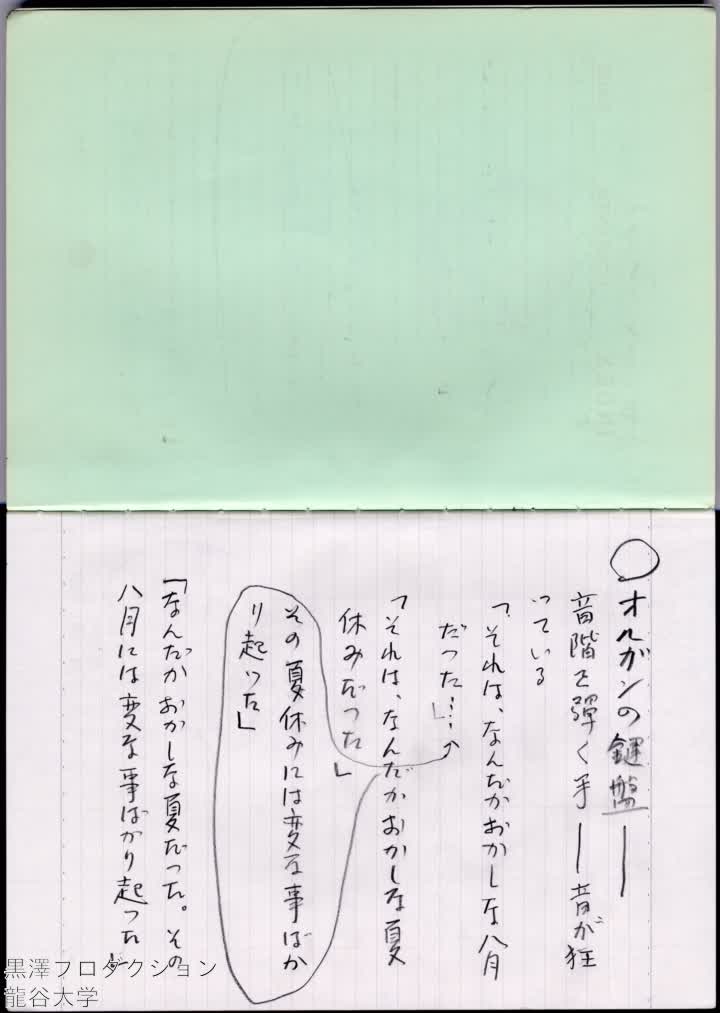 ○オルガンの鍵盤――
音階を弾く手――音が狂
っている
「それは、なんだかおかしな八月
だった……」
「それは、なんだかおかしな夏
休みだった」
その夏休みには変な事ばか
り起った」
「なんだかおかしな夏だった。その
八月には変な事ばかり起った」
黒澤プロダクション
龍谷大学